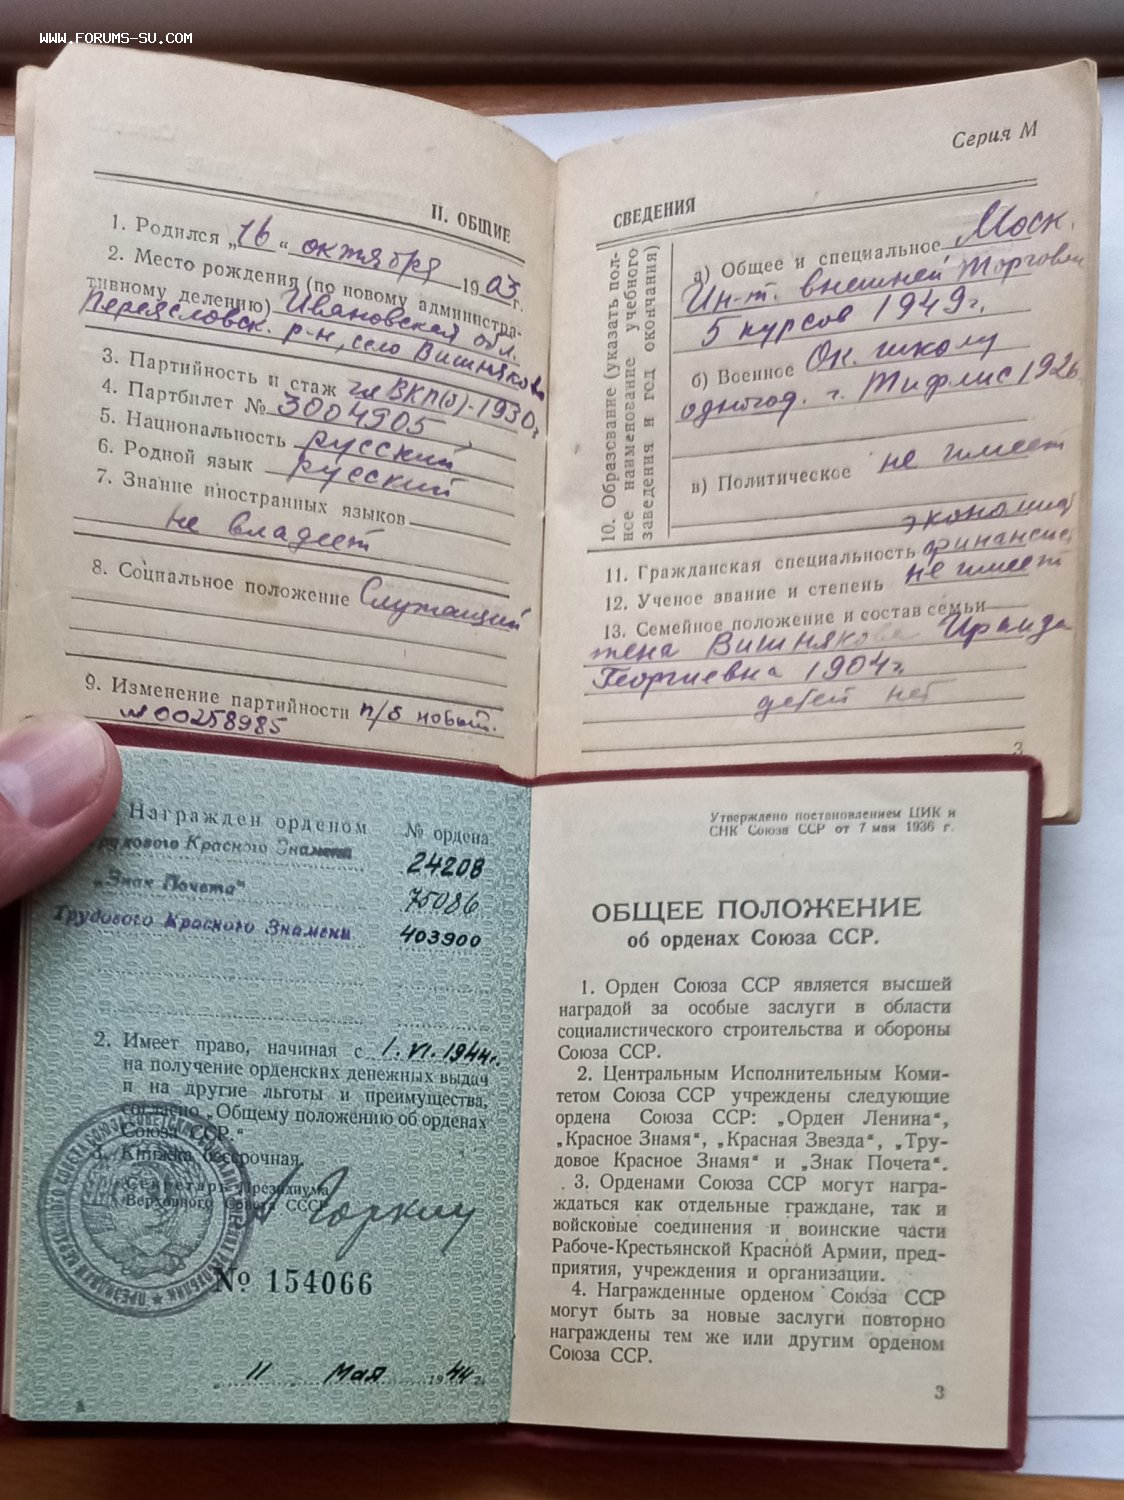 WWW.FORUMS-SU.COM
II. ОБЩИЕ
1. Родился „16“ октября 1903 г.
2. Место рождения (по новому административному делению) Ивановской обл.
Переясловск. р-н, село Вишняково
3. Партийность и стаж чл ВКП(б)-1930г
4. Партбилет № 3004905
5. Национальность русский
6. Родной язык русский
7. Знание иностранных языков
не владеет
8. Социальное положение Служащий
9. Изменение партийности п/б новый.
№00258985
Серия М
СВЕДЕНИЯ
10. Образование (указать полное наименование учебного заведения и год окончания)
а) Общее и специальное Моск.
Ин-т. внешней торговли
5 курсов 1949г.
б) Военное Ок. школу
одногод. г. Тифлис 1926
в) Политическое не имеет
11. Гражданская специальность экономист
финансист
12. Ученое звание и степень не имеет
13. Семейное положение и состав семьи
жена Вишнякова Ираида
Георгиевна 1904г.
детей нет
3
Награжден орденом № ордена
Трудового Красного Знамени 24208
„Знак Почета“ 75086
Трудового Красного Знамени 403900
2. Имеет право, начиная с 1.VI.1944г.
на получение орденских денежных выдач
и на другие льготы и преимущества,
согласно „Общему положению об орденах
Союза ССР.“
3. Книжка бессрочная.
Секретарь Президиума
Верховного Совета СССР
А Горкин
№ 154066
11 Мая 1944 г.
Утверждено постановлением ЦИК и
СНК Союза ССР от 7 мая 1936 г.
ОБЩЕЕ ПОЛОЖЕНИЕ
об орденах Союза ССР.
1. Орден Союза ССР является высшей
наградой за особые заслуги в области
социалистического строительства и обороны
Союза ССР.
2. Центральным Исполнительным Коми-
тетом Союза ССР учреждены следующие
ордена Союза ССР: „Орден Ленина“,
„Красное Знамя“, „Красная Звезда“, „Тру-
довое Красное Знамя“ и „Знак Почета“.
3. Орденами Союза ССР могут награ-
ждаться как отдельные граждане, так и
войсковые соединения и воинские части
Рабоче-Крестьянской Красной Армии, пред-
приятия, учреждения и организации.
4. Награжденные орденом Союза ССР
могут быть за новые заслуги повторно
награждены тем же или другим орденом
Союза ССР.
3